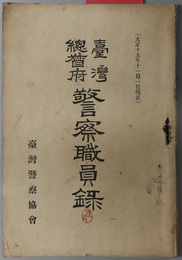 (大正十五年十一月一日現在)
臺灣
總督府
警察職員録
臺灣警察協會